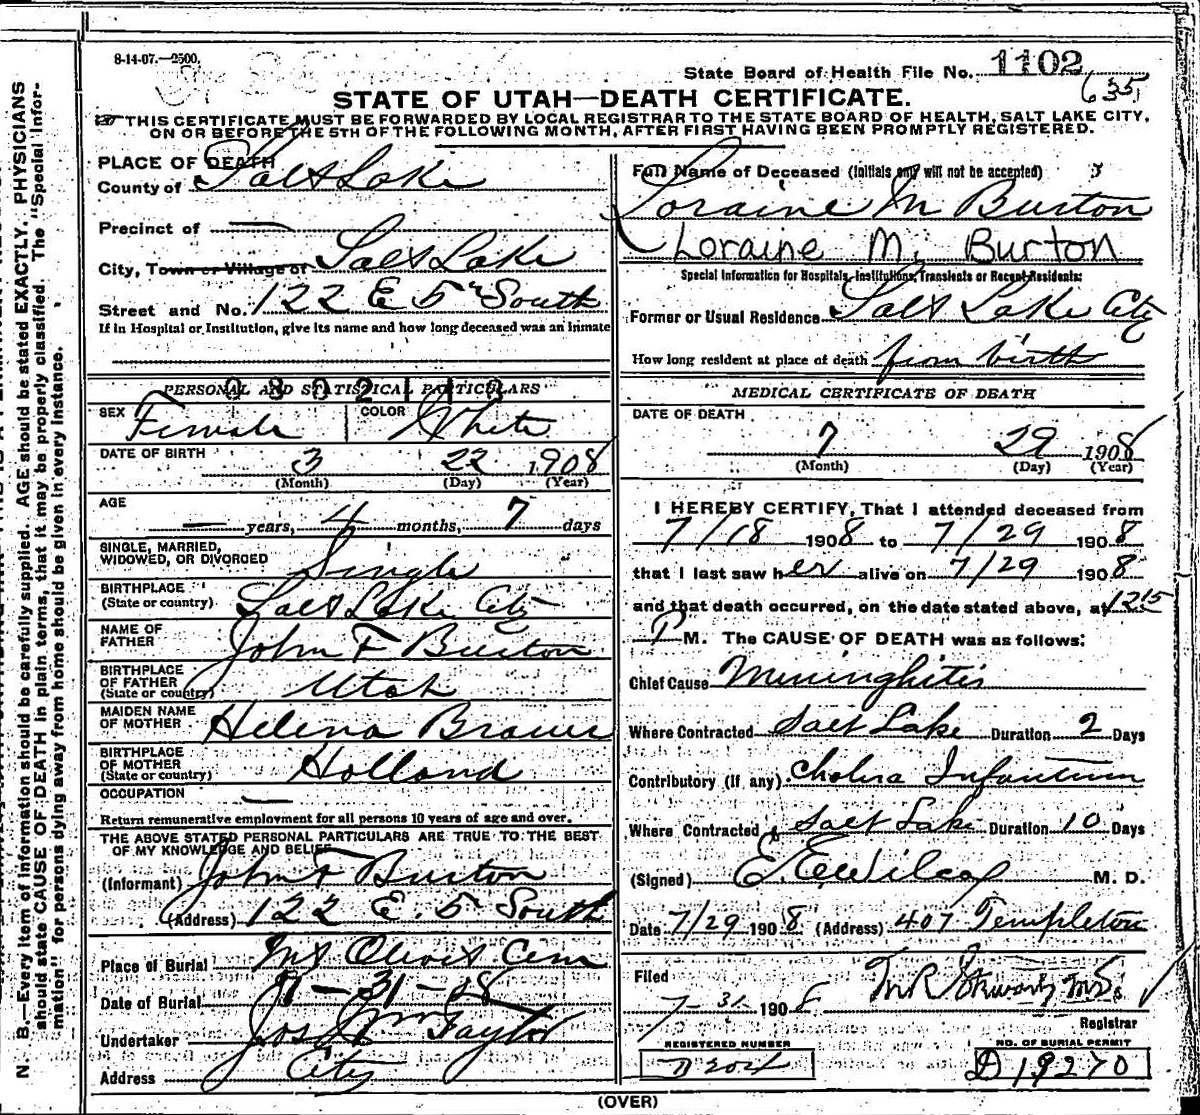 8-14-07.—2500.
State Board of Health File No. 1102
635
STATE OF UTAH—DEATH CERTIFICATE.
THIS CERTIFICATE MUST BE FORWARDED BY LOCAL REGISTRAR TO THE STATE BOARD OF HEALTH, SALT LAKE CITY,
ON OR BEFORE THE 5TH OF THE FOLLOWING MONTH, AFTER FIRST HAVING BEEN PROMPTLY REGISTERED.
N. B.—Every item of information should be carefully supplied. AGE should be stated EXACTLY. PHYSICIANS
should state CAUSE OF DEATH in plain terms, that it may be properly classified. The "Special Infor-
mation" for persons dying away from home should be given in every instance.
PLACE OF DEATH
County of Salt Lake
Precinct of —
City, Town or Village of Salt Lake
Street and No. 122 E 5th South
If in Hospital or Institution, give its name and how long deceased was an inmate
PERSONAL AND STATISTICAL PARTICULARS
0302113
SEX Female COLOR White
DATE OF BIRTH 3 22 1908
(Month) (Day) (Year)
AGE
— years, 4 months, 7 days
SINGLE, MARRIED,
WIDOWED, OR DIVORCED Single
BIRTHPLACE
(State or country) Salt Lake City
NAME OF
FATHER John F Burton
BIRTHPLACE
OF FATHER
(State or country) Utah
MAIDEN NAME
OF MOTHER Helena Brauer
BIRTHPLACE
OF MOTHER
(State or country) Holland
OCCUPATION —
Return remunerative employment for all persons 10 years of age and over.
THE ABOVE STATED PERSONAL PARTICULARS ARE TRUE TO THE BEST
OF MY KNOWLEDGE AND BELIEF
(Informant) John F Burton
(Address) 122 E. 5 South
Place of Burial Mt Olivet Cem
Date of Burial 7-31-08
Undertaker Jos Wm Taylor
Address City
Full Name of Deceased (Initials only will not be accepted)
Loraine M Burton
Loraine M. Burton
Special Information for Hospitals, Institutions, Transients or Recent Residents:
Former or Usual Residence Salt Lake City
How long resident at place of death from birth
MEDICAL CERTIFICATE OF DEATH
DATE OF DEATH
7 29 1908
(Month) (Day) (Year)
I HEREBY CERTIFY, That I attended deceased from
7/18 1908 to 7/29 1908
that I last saw her alive on 7/29 1908
and that death occurred, on the date stated above, at 1215
P M. The CAUSE OF DEATH was as follows:
Chief Cause Meninghitis
Where Contracted Salt Lake Duration 2 Days
Contributory (if any) Cholera Infantum
Where Contracted Salt Lake Duration 10 Days
(Signed) E. E. Wilcox M. D.
Date 7/29 1908 (Address) 407 Templeton
Filed
7-31 1908
Registrar
REGISTERED NUMBER
D204
NO. OF BURIAL PERMIT
D 19270
(OVER)